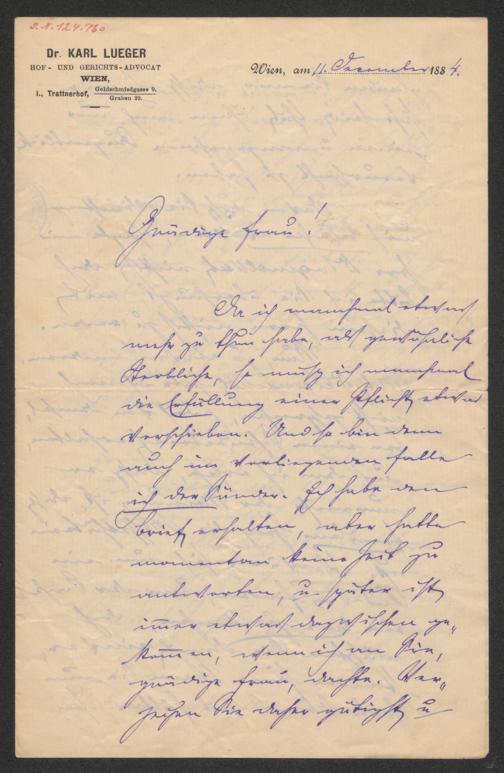 J.N. 124.760
Dr. KARL LUEGER
HOF- UND GERICHTS-ADVOCAT
WIEN,
I., Trattnerhof, Goldschmiedgasse 9.
Graben 29.
Wien, am 11. December 1884.
Gnädige Frau!
Da ich manchmal etwas
mehr zu thun habe, als gewöhnliche
Sterbliche, so muß ich manchmal
die Erfüllung einer Pflicht etwas
verschieben. Und so bin denn
auch im vorliegenden Falle
ich der Sünder. Ich habe den
Brief erhalten, aber hatte
momentan keine Zeit zu
antworten, u. später ist
immer etwas dazwischen ge-
kommen, wenn ich an Sie,
gnädige Frau, dachte. Ver-
zeihen Sie daher gütigst u